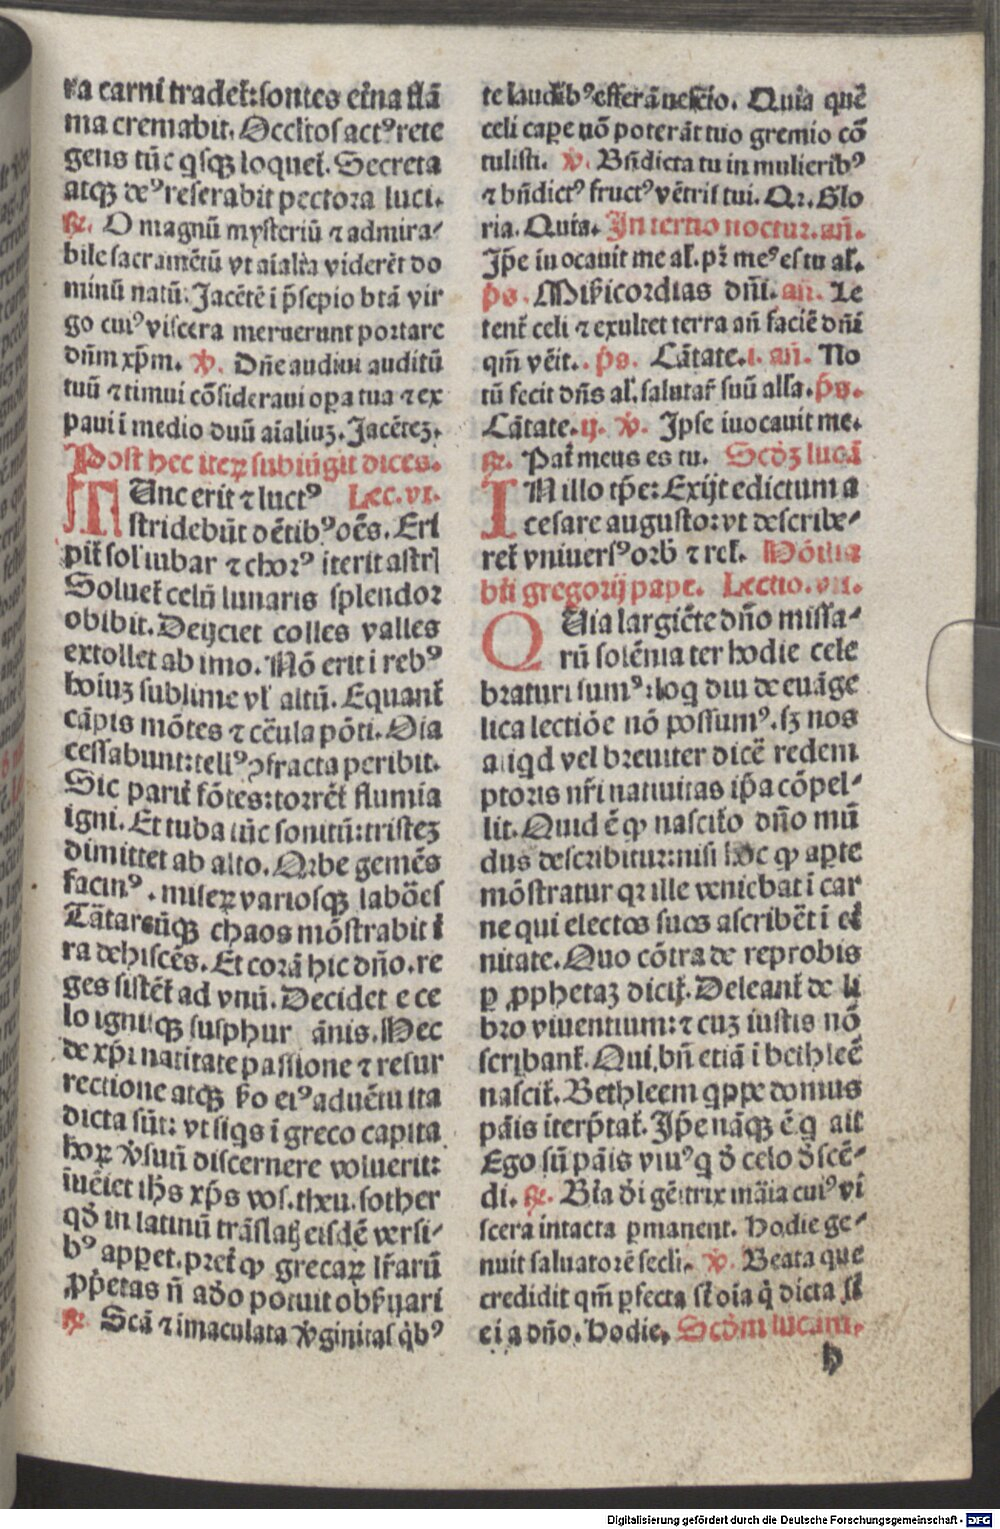 ra carni tradet᷒:sontes et᷒na flā
ma cremabit. Occltos act⁹ rete
gens tūc q̇sqꝫ loquet᷒. Secreta
atqꝫ de⁹ reserabit pectora luci.
℞. O magnū mysteriū ⁊ admira⸗
bile sacramētū vt aīalia viderēt do
minū natū. Jacētē ī p̄sepio btā vir
go cui⁹ viscera meruerunt portare
dn̄m xp̄m. ℣. Dn̄e audiui auditū
tuū ⁊ timui cōsideraui oꝑa tua ⁊ ex
paui ī medio duū aīaliuꝫ. Jacēteꝫ.
Post hec iteꝝ subiūgit dices.
TUnc erit ⁊ luct⁹ Lec. vi.
stridebūt dētib⁹ oēs. Eri
pit᷒ sol iubar ⁊ chor⁹ iterit astri
Soluet᷒ celū lunaris splendor
obibit. Deijciet colles valles
extollet ab imo. Nō erit i reb⁹
hoīuꝫ sublime vl᷒ altū. Equant᷒
cāpis mōtes ⁊ cēula pōti. Oīa
cessabunt:tell⁹ ꝯfracta peribit.
Sic parit᷒ fōtes:torrēt᷒ flumīa
igni. Et tuba tūc sonitū:tristeꝫ
dimittet ab alto. Orbe gemēs
facin⁹. miseꝝ variosqꝫ labōes
Tātareūqꝫ chaos mōstrabit t᷒
ra dehiscēs. Et corā hic dn̄o. re
ges sistēt᷒ ad vnū. Decidet e ce
lo ignisqꝫ susphur ānis. Hec
de xp̄i natitate passione ⁊ resur
rectione atqꝫ sc̄do ei⁹ aduētu ita
dicta sūt: vt siqs ī greco capita
hoꝝ v̇suū discernere voluerit:
īuēiet ih̄s xp̄s vos. thxu. sother
qd̄ in latinū trāslatꝫ eisdē versi⸗
b⁹ apꝑet. pret᷒ ꝙ grecaꝝ lr̄arū
ꝓp̄etas n̄ ado potuit obs̄uari
℞. Scā ⁊ īmaculata v̇ginitas qb⁹
te laudib⁹ efferā nescio. Quia quē
celi capere nō poterāt tuo gremio cō
tulisti. ℣. Bn̄dicta tu in mulierib⁹
⁊ bn̄dict⁹ fruct⁹ vētris tui. Qr. Glo
ria. Quia. In tertio noctur. an̄.
Jp̄e inuocauit me al᷒. pr̄ me⁹ es tu al᷒.
p̄s. Mis̄icordias dn̄i. an̄. Le
tent᷒ celi ⁊ exultet terra an̄ faciē dn̄i
qm̄ vēit. p̄s. Cātate. i. an̄. No
tū fecit dn̄s al᷒. salutar᷒ suū all᷒a. p̄s.
Cātate. ij. ℣. Jpse iuocauit me.
℞. Pat᷒ meus es tu. Scd̄ꝫ lucā
IN illo tp̄e: Exijt edictum a
cesare augusto: vt describe⸗
ret᷒ vniuers⁹ orb̄ ⁊ rel᷒. Homīlia
bt̄i gregorij pape. Lectio. vii.
QUia largiēte dn̄o missa⸗
rū solēnia ter hodie cele
braturi sum⁹: loq̇ diu de euāge
lica lectiōe nō possum⁹. sꝫ nos
aliqd vel breuiter dicē redem
ptoris nr̄i natiuitas ip̄a cōpel⸗
lit. Quid ē ꝙ nascit᷒o dn̄o mū
dus describitur:nisi hoc ꝙ aꝑte
mōstratur qr ille veniebat ī car
ne qui electos suos ascribēt ī et᷒
nitate. Quo cōtra de reprobis
ꝑ ꝓphetaꝫ dicit᷒. Deleant᷒ de li
bro viuentium: ⁊ cuꝫ iustis nō
scribant᷒. Qui bn̄ etiā i bethleē
nascit᷒. Bethleem qppe domus
pāis iterp̄tat᷒. Jp̄e nāqꝫ ē q̇ ait
Ego sū pāis viu⁹ q̇ d̄ celo d̄scē⸗
di. ℞. Bt̄a d̄i gēitrix m̄aia cui⁹ vi
scera intacta ꝑmanent. hodie ge⸗
nuit saluatorē secli. ℣. Beata que
credidit qm̄ ꝑfecta st̄ oīa q̄ dicta st̄
ei a dn̄o. Hodie. Scd̄m lucam.
h
Digitalisierung gefördert durch die Deutsche Forschungsgemeinschaft - DFG